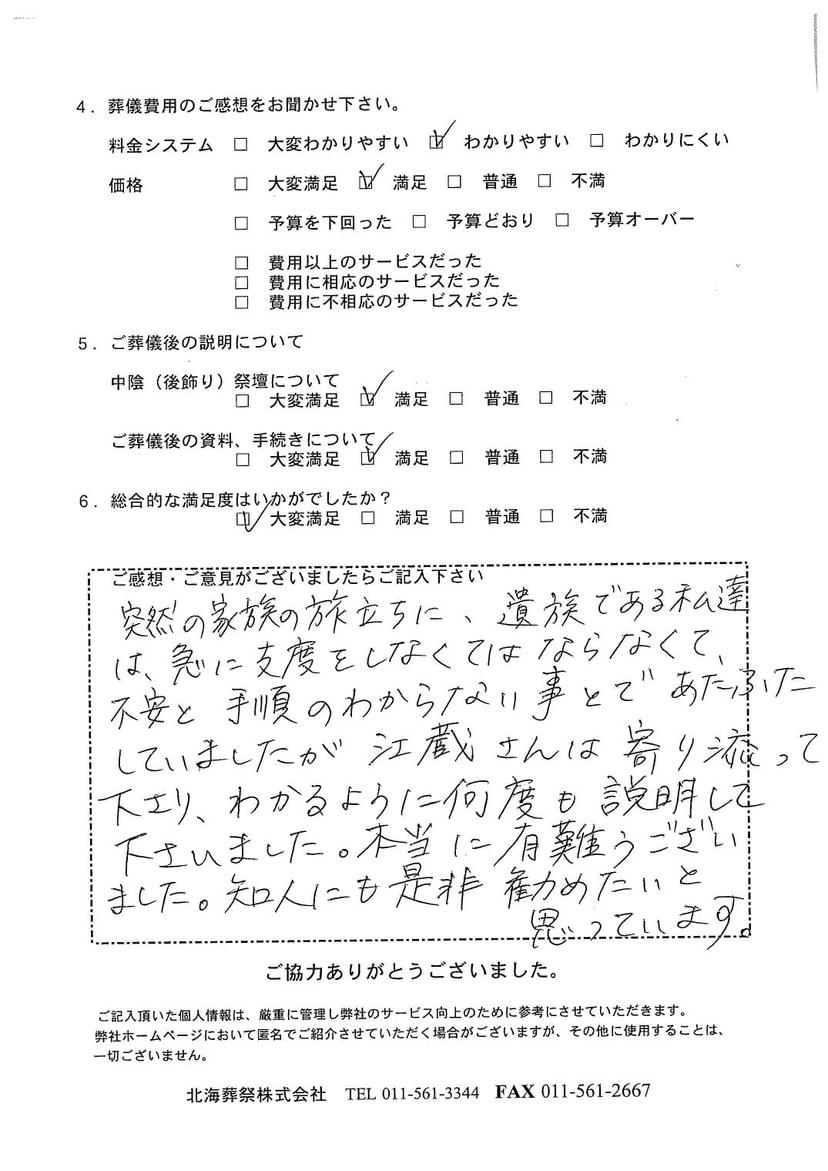 4．葬儀費用のご感想をお聞かせ下さい。
料金システム □ 大変わかりやすい ☑ わかりやすい □ わかりにくい
価格 □ 大変満足 ☑ 満足 □ 普通 □ 不満
□ 予算を下回った □ 予算どおり □ 予算オーバー
□ 費用以上のサービスだった
□ 費用に相応のサービスだった
□ 費用に不相応のサービスだった
5．ご葬儀後の説明について
中陰（後飾り）祭壇について
□ 大変満足 ☑ 満足 □ 普通 □ 不満
ご葬儀後の資料、手続きについて
□ 大変満足 ☑ 満足 □ 普通 □ 不満
6．総合的な満足度はいかがでしたか？
☑ 大変満足 □ 満足 □ 普通 □ 不満
ご感想・ご意見がございましたらご記入下さい
突然の家族の旅立ちに、遺族である私達
は、急に支度をしなくてはならなくて、
不安と手順のわからない事とであたふた
していましたが江蔵さんは寄り添って
下さり、わかるように何度も説明して
下さいました。本当に有難うござい
ました。知人にも是非勧めたいと
思っています。
ご協力ありがとうございました。
ご記入頂いた個人情報は、厳重に管理し弊社のサービス向上のために参考にさせていただきます。
弊社ホームページにおいて匿名でご紹介させていただく場合がございますが、その他に使用することは、
一切ございません。
北海葬祭株式会社 TEL 011-561-3344 FAX 011-561-2667